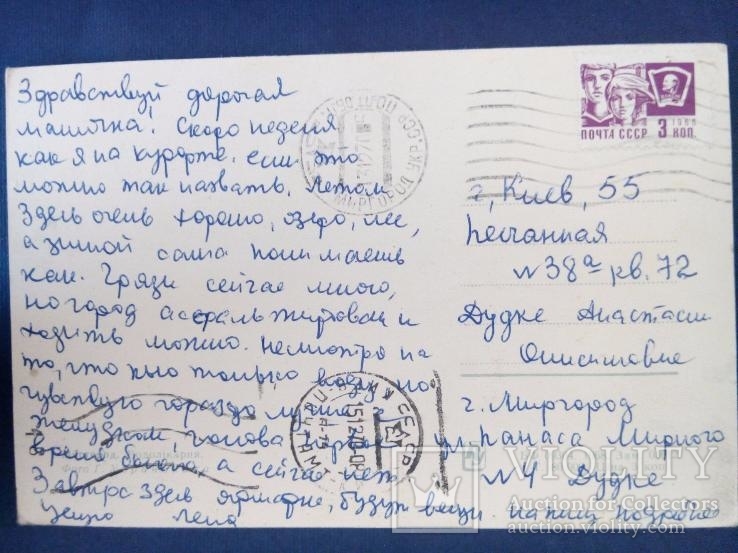 Здравствуй дорогая
мамочка! Скоро неделя
как я на курорте, если это
можно так назвать. Летом
здесь очень хорошо, озеро, лес,
а зимой сама понимаешь
как. Грязи сейчас много,
но город асфальтирован и
ходить можно. Несмотря на
то, что пью только воду
чувствую гораздо лучше
желудком, голова
время болела, а сейчас нет.
Завтра здесь ярмарка, будут вещи. напишу подробнее
целую Лена
ПОЧТА СССР 3 КОП.
1966
МИРГОРОД
УКР. ССР
г. Киев, 55
Песчанная
№ 38а кв. 72
Дудке Анастасии
Онисимовне
г. Миргород
ул. Панаса Мирного
№ 4 Дудке
VIOLITY
Auction for Collectors
auction.violity.com